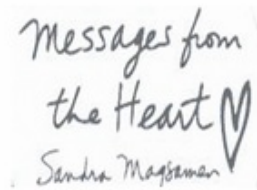 Messages from
the Heart
Sandra Magsamen